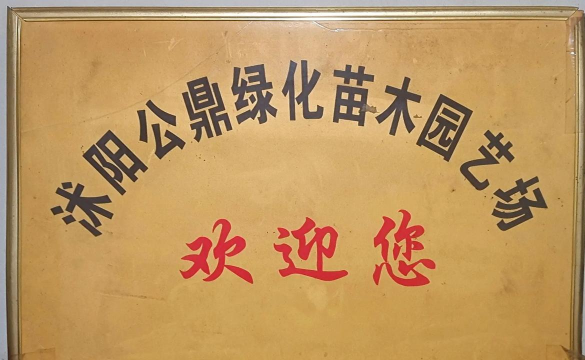 沭阳公鼎绿化苗木园艺场
欢迎您